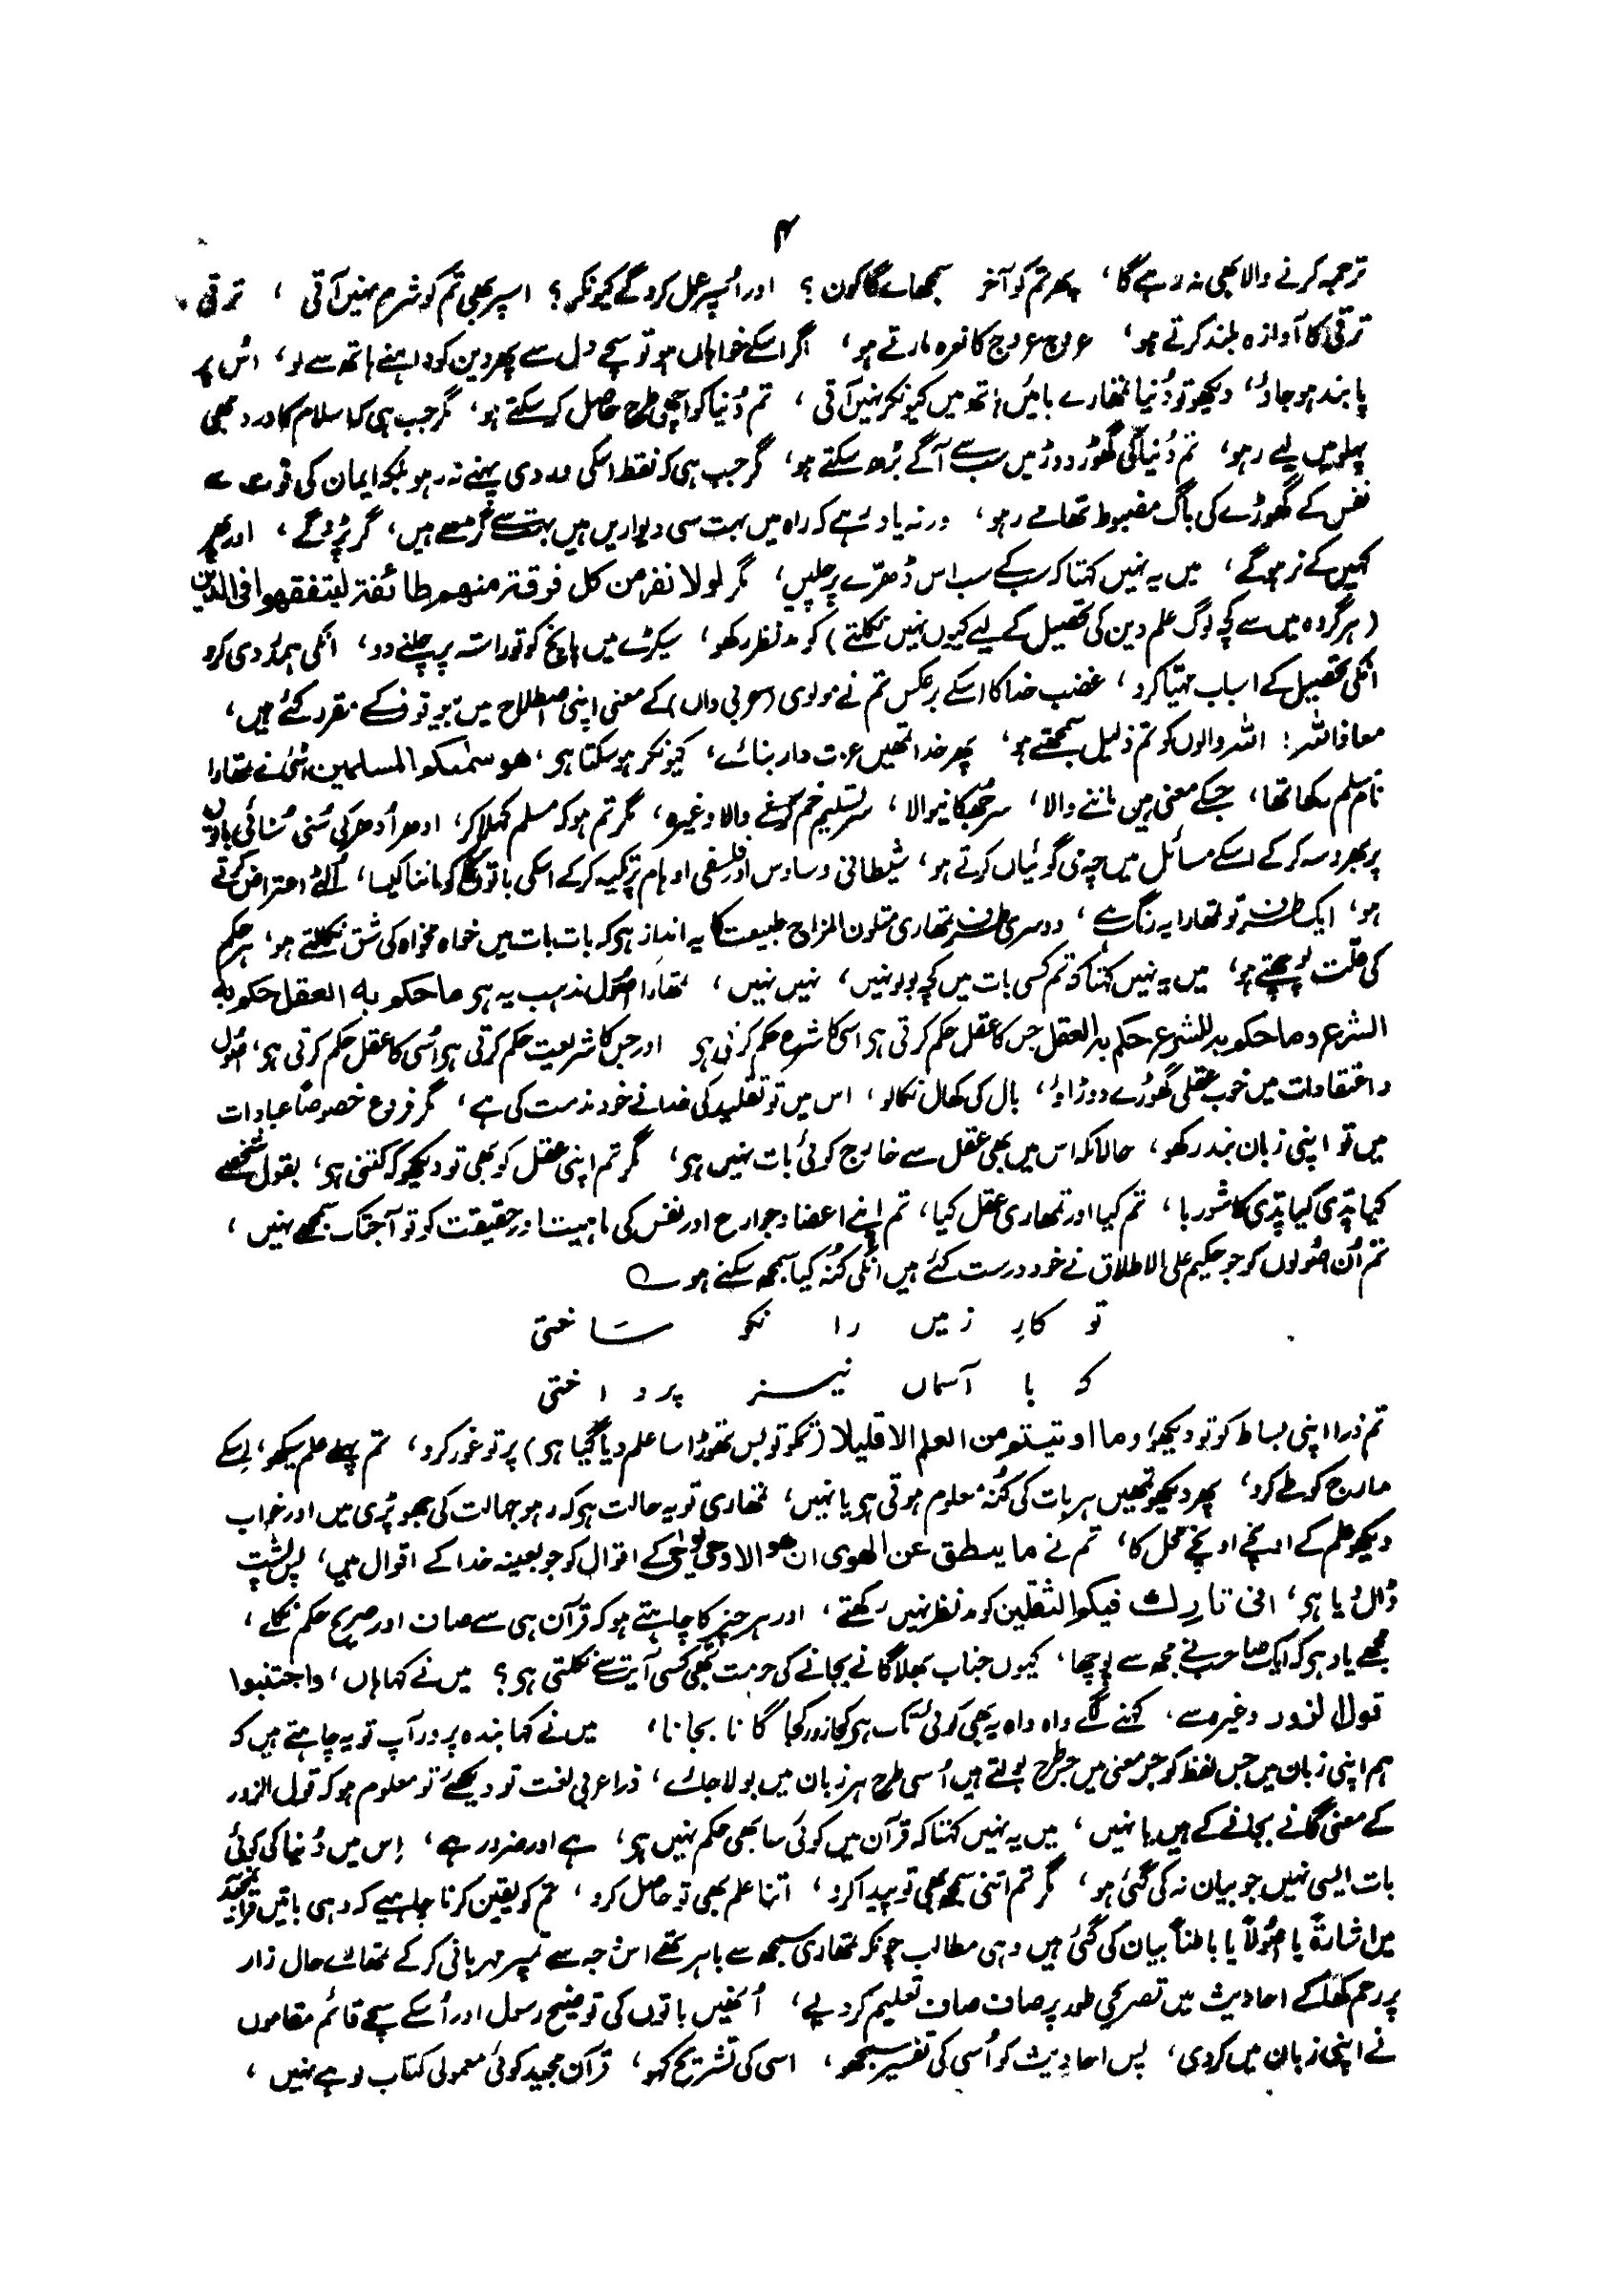 ۴
ترجمہ کرنے والا بھی نہ رہے گا، پھر تم کو آخر سمجھائے گا کون؟ اور اُسپر عمل کرو گے کیونکر؟ اسپر بھی تم کو شرم نہیں آتی، ترقی
ترقی کا آوازہ بلند کرتے ہو، عروج عروج کا نعرہ مارتے ہو، اگر اسکے خواہاں ہو تو سچے دل سے پھر دین کو داہنے ہاتھ سے لو، اُس پر
پابند ہو جاؤ، دیکھو تو دُنیا تمھارے بائیں ہاتھ میں کیونکر نہیں آتی، تم دُنیا کو اچھی طرح حاصل کر سکتے ہو، مگر جب ہی کہ اسلام کا درد بھی
پہلو میں لیے رہو، تم دُنیا کی گھوڑ دوڑ میں سب سے آگے بڑھ سکتے ہو، مگر جب ہی کہ فقط اسکی وردی پہنے نہ رہو بلکہ ایمان کی قوت سے
نفس کے گھوڑے کی باگ مضبوط تھامے رہو، ورنہ یاد رہے کہ راہ میں بہت سی دیواریں ہیں بہت سے گڑھے ہیں، گر پڑو گے، اور پھر
کہیں کے نہ ہو گے، میں یہ نہیں کہتا کہ سب کے سب اس ڈھرّے پر چلیں، مگر لولا نفر من کل فرقۃ منھم طائفۃ لیتفقھوا فی الدین
(ہر گروہ میں سے کچھ لوگ علم دین کی تحصیل کے لیے کیوں نہیں نکلتے) کو مدنظر رکھو، سیکڑے میں پانچ کو تو راستہ پر چلنے دو، انکی ہمدردی کرو
انکی تحصیل کے اسباب مہیّا کرو، غضب خدا کا اسکے برعکس تم نے مولوی (عربی داں) کے معنی اپنی اصطلاح میں بیوقوف کے مقرر کئے ہیں،
معاذ اللہ! اللہ والوں کو تم ذلیل سمجھتے ہو، پھر خدا تمھیں عزت دار بنائے، کیونکر ہو سکتا ہی، ھو سمٰکم المسلمین اُسی نے تمھارا
نام مسلم رکھا تھا، جسکے معنی ہیں ماننے والا، سر جھکانیوالا، سر تسلیم خم کرنے والا وغیرہ، مگر تم ہو کہ مسلم کہلا کر، ادھر اُدھر کی سُنی سُنائی باتوں
پر بھروسہ کر کے اسکے مسائل میں چہ می گوئیاں کرتے ہو، شیطانی وساوس اور فلسفی اوہام پر تکیہ کر کے اسکی باتوں کو ماننا کیسا، اُلٹے اعتراض کرتے
ہو، ایک طرف تو تمھارا یہ رنگ ہے، دوسری طرف تمھاری متلون المزاج طبیعت کا یہ انداز ہی کہ بات بات میں خواہ مخواہ کی شق نکالتے ہو، ہر حکم
کی علّت پوچھتے ہو، میں یہ نہیں کہتا کہ تم کسی بات میں کچھ بولو نہیں، نہیں نہیں، تمھارا اصول مذہب یہ ہی ما حکم بہ العقل حکم بہ
الشرع وما حکم بہ الشرع حکم بہ العقل جس کا عقل حکم کرتی ہی اسی کا شرع حکم کرتی ہی اور جس کا شریعت حکم کرتی ہی اُسی کا عقل حکم کرتی ہی، اُصول
و اعتقادات میں خوب عقلی گھوڑے دوڑاؤ، بال کی کھال نکالو، اس میں تو تقلید کی خدا نے خود مذمت کی ہے، مگر فروع خصوصاً عبادات
میں تو اپنی زبان بند رکھو، حالانکہ اس میں بھی عقل سے خارج کوئی بات نہیں ہی، مگر تم اپنی عقل کو بھی تو دیکھو کہ کتنی ہی، بقول شخصے
کیا پدّی کیا پدّی کا شوربا، تم کیا اور تمھاری عقل کیا، تم اپنے اعضا و جوارح اور نفس کی ماہیت اور حقیقت کو تو آجتک سمجھے نہیں،
تم اُن اصولوں کو جو حکیم علی الاطلاق نے خود درست کئے ہیں انکی کُنہ کیا سمجھ سکتے ہو ؎
تو کارِ زمیں را نکو ساختی
کہ با آسماں نیز پرداختی
تم ذرا اپنی بساط کو تو دیکھو، وما اوتیتم من العلم الا قلیلا (تمکو تو بس تھوڑا سا علم دیا گیا ہی) پر تو غور کرو، تم پہلے علم سیکھو، اسکے
مدارج کو طے کرو، پھر دیکھو تمھیں ہر بات کی کُنہ معلوم ہوتی ہی یا نہیں، تمھاری تو یہ حالت ہی کہ رہو جہالت کی جھوپڑی میں اور خواب
دیکھو علم کے اونچے اونچے محل کا، تم نے ما ینطق عن الھوی ان ھو الا وحی یوحی کے اقوال کو جو بعینہ خدا کے اقوال ہیں، پس پشت
ڈال دیا ہی، انی تارک فیکم الثقلین کو مدنظر نہیں رکھتے، اور ہر چیز کا چاہتے ہو کہ قرآن ہی سے صاف اور صریح حکم نکلے،
مجھے یاد ہی کہ ایک صاحب نے مجھ سے پوچھا، کیوں جناب بھلا گانے بجانے کی حرمت بھی کسی آیت سے نکلتی ہی؟ میں نے کہا ہاں، واجتنبوا
قول الزور وغیرہ سے، کہنے لگے واہ واہ یہ بھی کوئی تُک ہی کجا زور کجا گانا بجانا، میں نے کہا بندہ پرور آپ تو یہ چاہتے ہیں کہ
ہم اپنی زبان میں جس لفظ کو جس معنی میں جس طرح بولتے ہیں اُسی طرح ہر زبان میں بولا جائے، ذرا عربی لغت تو دیکھئے تو معلوم ہو کہ قول الزور
کے معنی گانے بجانے کے ہیں یا نہیں، میں یہ نہیں کہتا کہ قرآن میں کوئی سا بھی حکم نہیں ہی، ہے اور ضرور ہے، اِس میں دُنیا کی کوئی
بات ایسی نہیں جو بیان نہ کی گئی ہو، مگر تم اتنی سمجھ بھی تو پیدا کرو، اتنا علم بھی تو حاصل کرو، تم کو یقین کرنا چاہیے کہ وہی باتیں قرآن مجید
میں اشارۃً یا اصولاً یا باطناً بیان کی گئی ہیں وہی مطالب چونکہ تمھاری سمجھ سے باہر تھے اس وجہ سے تمپر مہربانی کر کے تمھارے حال زار
پر رحم کھا کے احادیث میں تصریحی طور پر صاف صاف تعلیم کر دیے، اُنھیں باتوں کی توضیح رسول اور اُسکے سچے قائم مقاموں
نے اپنی زبان میں کر دی، پس احادیث کو اُسی کی تفسیر سمجھو، اسی کی تشریح کہو، قرآن مجید کوئی معمولی کتاب تو ہے نہیں،